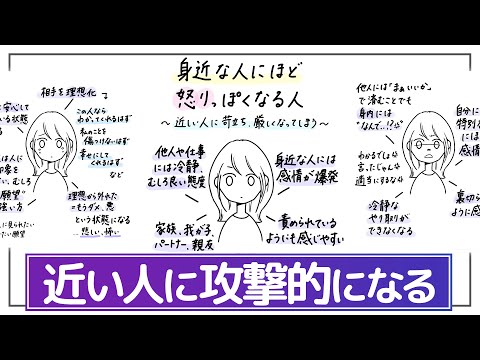 身近な人にほど
怒りっぽくなる人
~近い人に苛立ち、厳しくなってしまう~
相手を理想化
この人なら
わかってくれるはず
私のことを
傷つけないはず
幸せにして
くれるはず
安心して
いる状態
は人に
印象を
い、むしろ
願望
強い方
に見られたい
たい願望
理想から外れた
=もうダメ、悪
という状態になる
…悲しい、怖い
他人や仕事
には冷静、
むしろ良い態度
身近な人には
感情が爆発
家族、我が子、
パートナー、親友
責められている
ようにも感じやすい
他人には「まぁいいか」
で済むことでも
身内には
"なんで…!?"
わかるでしょ
言ったじゃん
適当にするな
冷静な
やり取りが
できなくなる
自分に
特別
には
感情
裏切ら
ように感
近い人に攻撃的になる